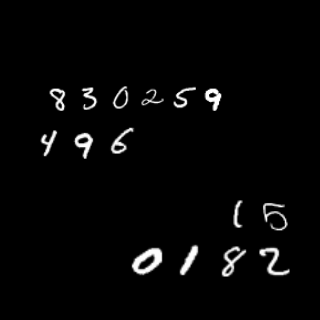 830259
496
15
0182